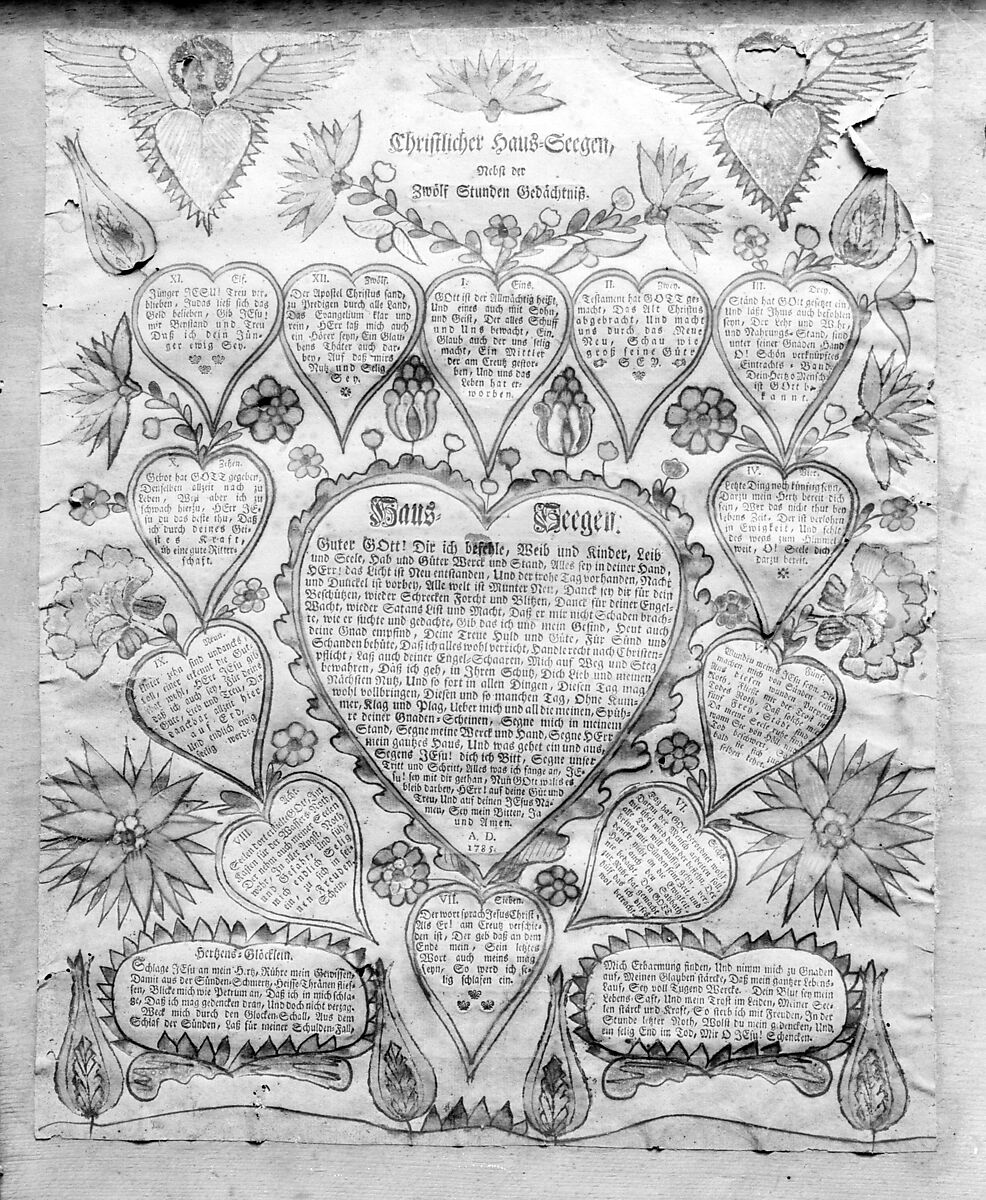 Christlicher Haus=Seegen,
Nebst der
Zwölf Stunden Gedächtniß.
I. Eins.
GOtt ist der Allmächtig heißt,
Und eines auch mit Sohn,
und Geist, Der alles Schuff
und Uns bewacht, Ein
Glaub auch der uns selig
macht, Ein Mittler
der am Creutz gestor-
ben, Und uns das
Leben hat er-
worben.
II. Zwey.
Testament hat GOTT ge-
macht, Das Alt Christus
abgebracht, Und macht
uns durch das Neue
Neu, Schau wie
groß seine Güte
SEY.
III. Drey.
Ständ hat GOtt gesetzet ein
und läßt Ihms auch befohlen
seyn, Der Lehr und Wehr,
und Nahrungs=Stand, sind
unter seiner Gnaden=Hand
O! Schön verknüpftes
Eintrachts=Band
Dein Hertz o Mensch
ist GOtt be-
kannt.
IV. Vier.
Letzte Ding noch künftig seyn,
Darzu mein Hertz bereit dich
fein, Wer das nicht thut bey
lebens Zeit, Der ist verlohrn
in Ewigkeit, Und fehlt
des wegs zum Himmel
weit, O! Seele dich
darzu bereit.
V. Fünf.
Wunden meines JEsu, Die
machen mich von Sünden rein,
Aus diesen wunden Purpur
Roth, Fließt mir der Trost in
Todes Noth, Daß solche mö-
Da meine Seel
VI. Sechs.
Tag hat GOtt
VII. Sieben.
Der wort sprach JEsus Christ,
Als Er! am Creutz verschie-
den ist, Der geb daß an dem
Ende mein, Sein letztes
Wort auch meins mag
seyn, So werd ich se-
lig schlafen ein.
VIII. Acht.
Seelen erhielt GOtt
Kasten für der Wassers=Noth,
Der nehm auch meiner Seelen
wahr, In aller Angst, Noth
und Gefahr, Und führe
mich endlich seelig
ein, In sich
Freuden
Schein.
IX. Neun.
der gehn sind undancks
voll, einer erkant die Gut-
that wohl, HErr JEsu gib
daß ich auch sey, Für deine
Güte, Lieb und Treu, Dir
danckbar stets hier
auf Erd,
Und endlich ewig
selig werde.
X. Zehen.
Gebot hat GOTT gegeben,
Denselben allzeit nach zu
Leben, Weil aber ich zu
schwach hierzu, HErr JE-
su du das beste thu, Daß
ich durch deines Gei-
stes Kraft,
üb eine gute Ritter-
schaft.
XI. Elf.
Jünger JESU! Treu ver-
blieben, Judas ließ sich das
Geld belieben, Gib JEsu!
mir Bestand und Treu
Daß ich dein Jün-
ger ewig Sey.
XII. Zwölf.
Der Apostel Christus sand,
zu Predigen durch alle Land,
Das Evangelium klar und
rein, HErr laß mich auch
ein Hörer seyn, Ein Glau-
bens Thäter auch dar-
bey, Auf daß mirs
Nutz und Selig
Sey.
Haus= Seegen.
Guter GOtt! Dir ich befehle, Weib und Kinder, Leib
und Seele, Hab und Güter Werck und Stand, Alles sey in deiner Hand,
HErr! das Licht ist Neu entstanden, Und der frohe Tag vorhanden, Nacht
und Dunckel ist vorbey, Alle welt ist Munter Neu, Danck sey dir für dein
Beschützen, wieder Schrecken Forcht und Blitzen, Danck für deiner Engel-
Wacht, wieder Satans List und Macht, Daß er mir nicht Schaden brach-
te, wie er suchte und gedachte, Gib das ich und mein Gesind, Heut auch
deine Gnad empfind, Deine Treue Huld und Güte, Für Sünd und
Schanden behüte, Daß ich alles wohl verricht, Handle recht nach Christen-
pflicht, Laß auch deiner Engel=Schaaren, Mich auf Weg und Steg
bewahren, Daß ich geh, in Ihren Schutz, Dich Lieb und meinen
Nächsten Nutz, Und so fort in allen Dingen, Diesen Tag mag
wohl vollbringen, Diesen und so manchen Tag, Ohne Kum-
mer, Klag und Plag, Ueber mich und all die meinen, Spüh-
re deiner Gnaden=Scheinen, Segne mich in meinem
Stand, Segne meine Werck und Hand, Segne HErr
mein gantzes Haus, Und was gehet ein und aus,
Segens JEsu! dich ich Bitt, Segne unser
Tritt und Schritt, Alles was ich fange an, JE-
su! sey mit dir gethan, Nun GOtt walts es
bleib darbey, HErr! auf deine Güt und
Treu, Und auf deinen JEsus Na-
men, Sey mein Bitten, Ja
und Amen.
A. D.
1785.
Hertzens=Glöcklein.
Schlage JEsu an mein Hertz, Rühre mein Gewissen,
Damit aus der Sünden=Schmertz, Heisse Thränen flies-
sen, Blicke mich wie Petrum an, Daß ich in mich schla-
ge, Daß ich mag gedencken dran, Und doch nicht verzag.
Weck mich durch den Glocken=Schall, Aus dem
Schlaf der Sünden, Laß für meiner Schulden=Fall,
Mich Erbarmung finden, Und nimm mich zu Gnaden
auf, Meinen Glauben stärcke, Daß mein gantzer Lebens-
Lauf, Sey voll Tugend Wercke. Dein Blut sey mein
Lebens=Saft, Und mein Trost im Leiden, Meiner See-
len stärck und Kraft, So sterb ich mit Freuden, In der
Stunde letzter Noth, Wolst du mein gedencken, Und,
ein selig End im Tod, Mir O JEsu! Schencken.